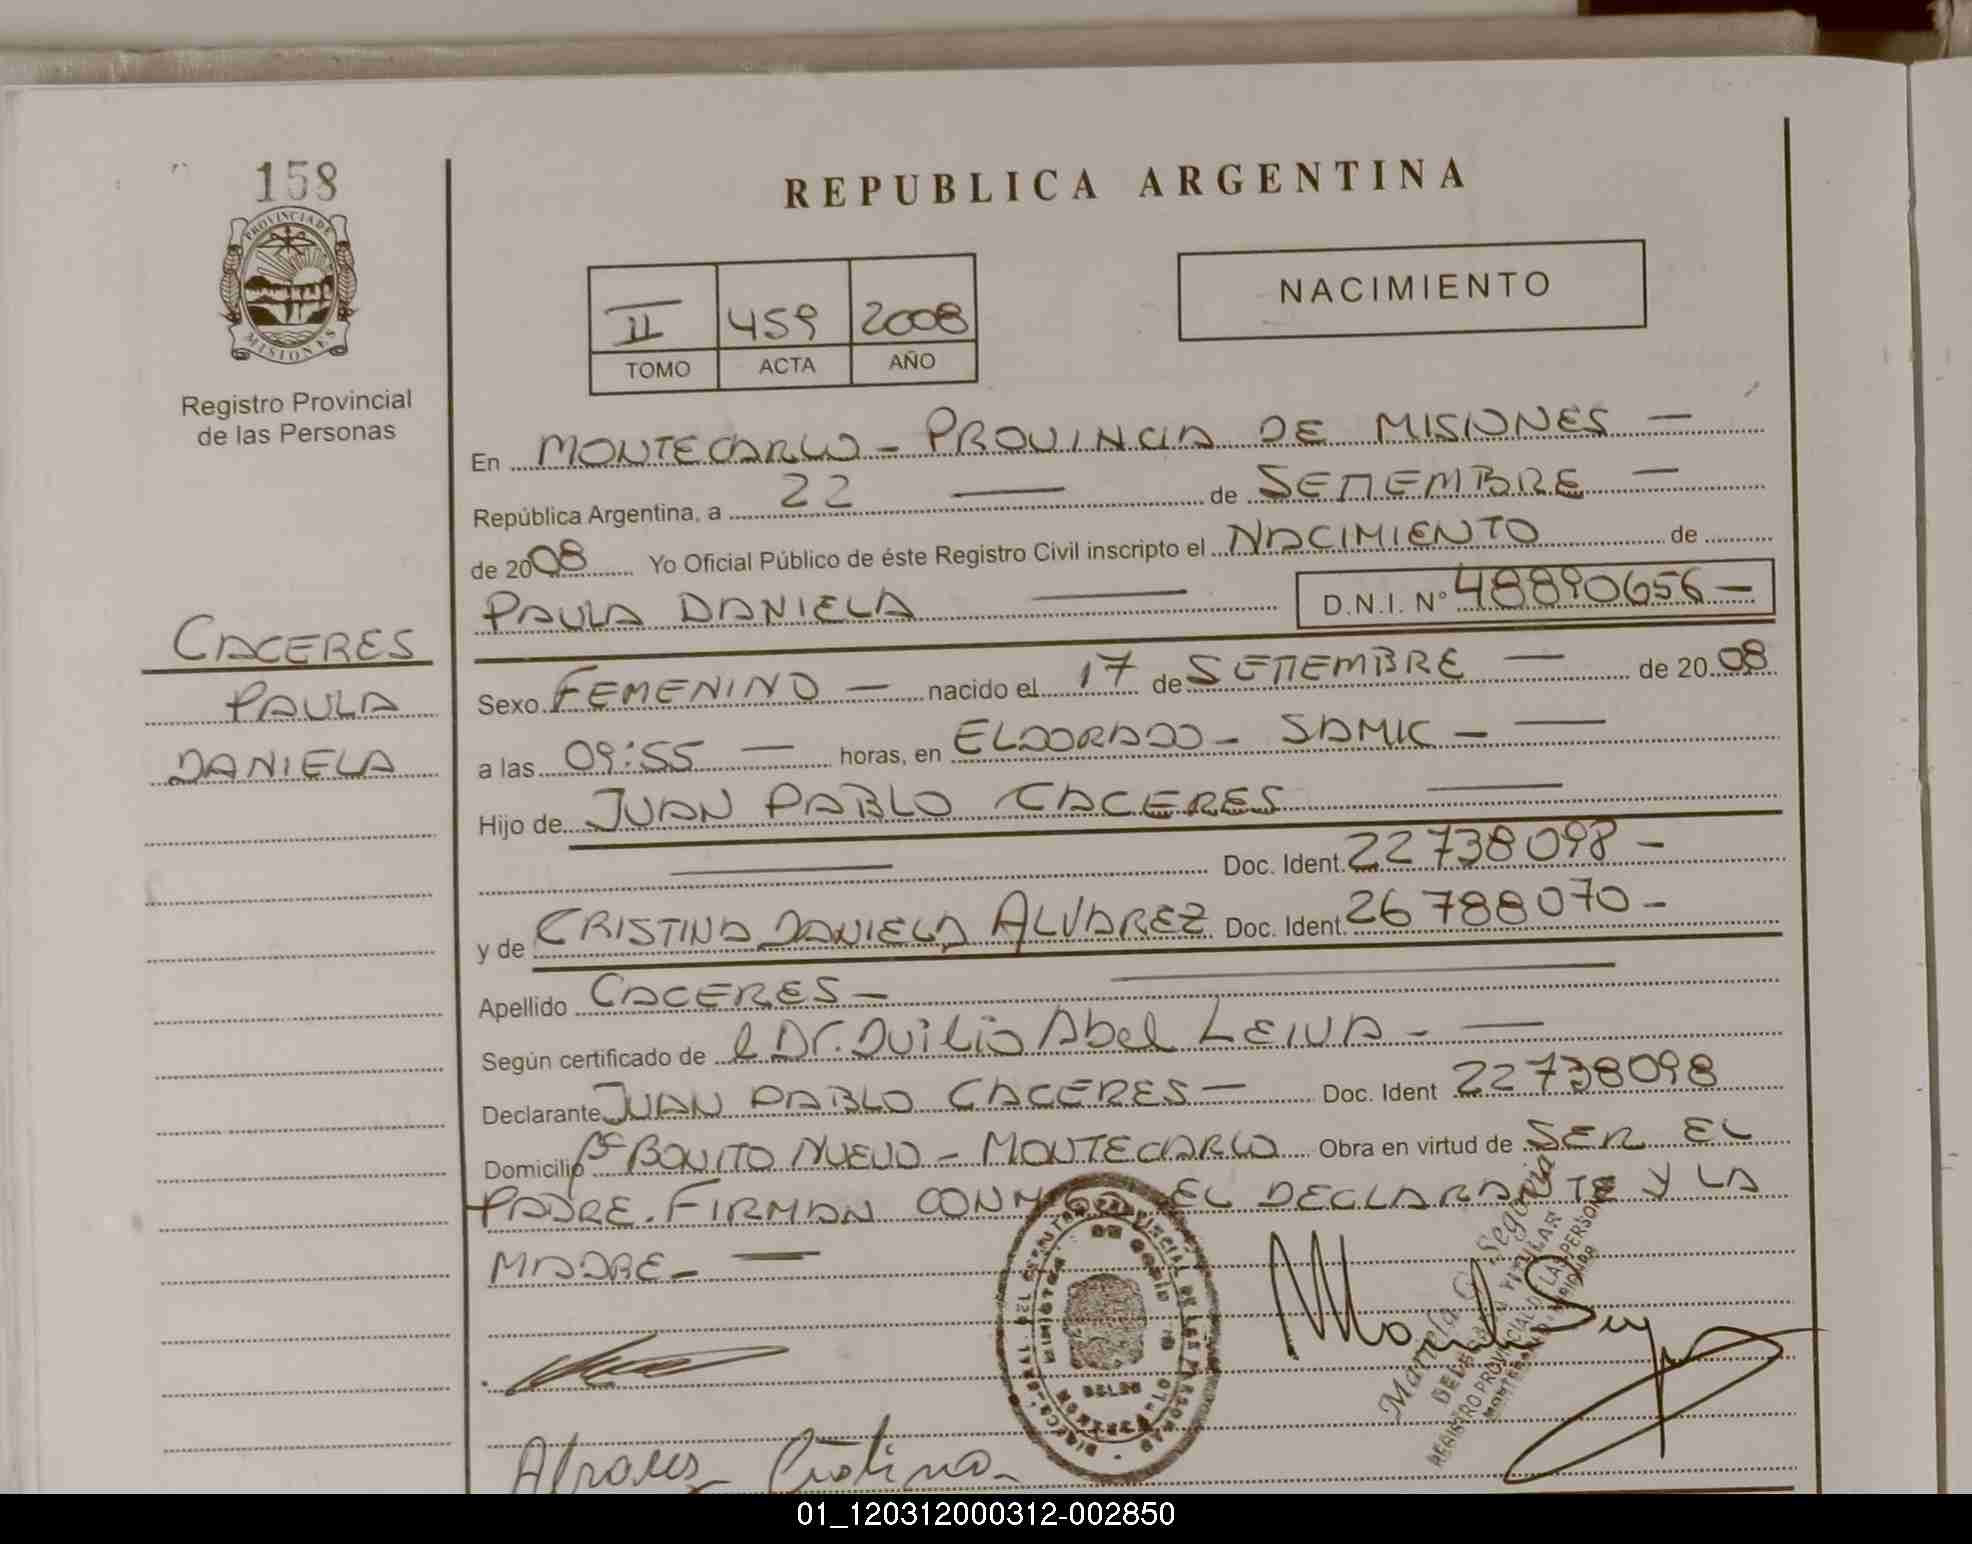 158
PROVINCIA DE
MISIONES
Registro Provincial
de las Personas
CACERES
PAULA
DANIELA
REPUBLICA ARGENTINA
II 459 2008
TOMO ACTA AÑO
NACIMIENTO
En MONTECARLO - PROVINCIA DE MISIONES —
República Argentina, a 22 — de SETIEMBRE —
de 2008 Yo Oficial Público de éste Registro Civil inscripto el NACIMIENTO de
PAULA DANIELA — D.N.I. Nº 48890656 —
Sexo FEMENINO — nacido el 17 de SETIEMBRE — de 2008
a las 09:55 — horas, en ELDORADO - SAMIC - —
Hijo de JUAN PABLO CACERES —
— Doc. Ident. 22738098 -
y de CRISTINA DANIELA ALVAREZ Doc. Ident. 26788070 -
Apellido CACERES - —
Según certificado de el Dr. Duilio Abel LEIVA - —
Declarante JUAN PABLO CACERES — Doc. Ident 22738098
Domicilio Bº BONITO NUEVO - MONTECARLO Obra en virtud de SER EL
PADRE. FIRMAN CONMIGO EL DECLARANTE Y LA
MADRE - —
Mariela G. Segovia
DELEGADA TITULAR
REGISTRO PROVINCIAL DE LAS PERSONAS
Alvarez Cristina
01_120312000312-002850